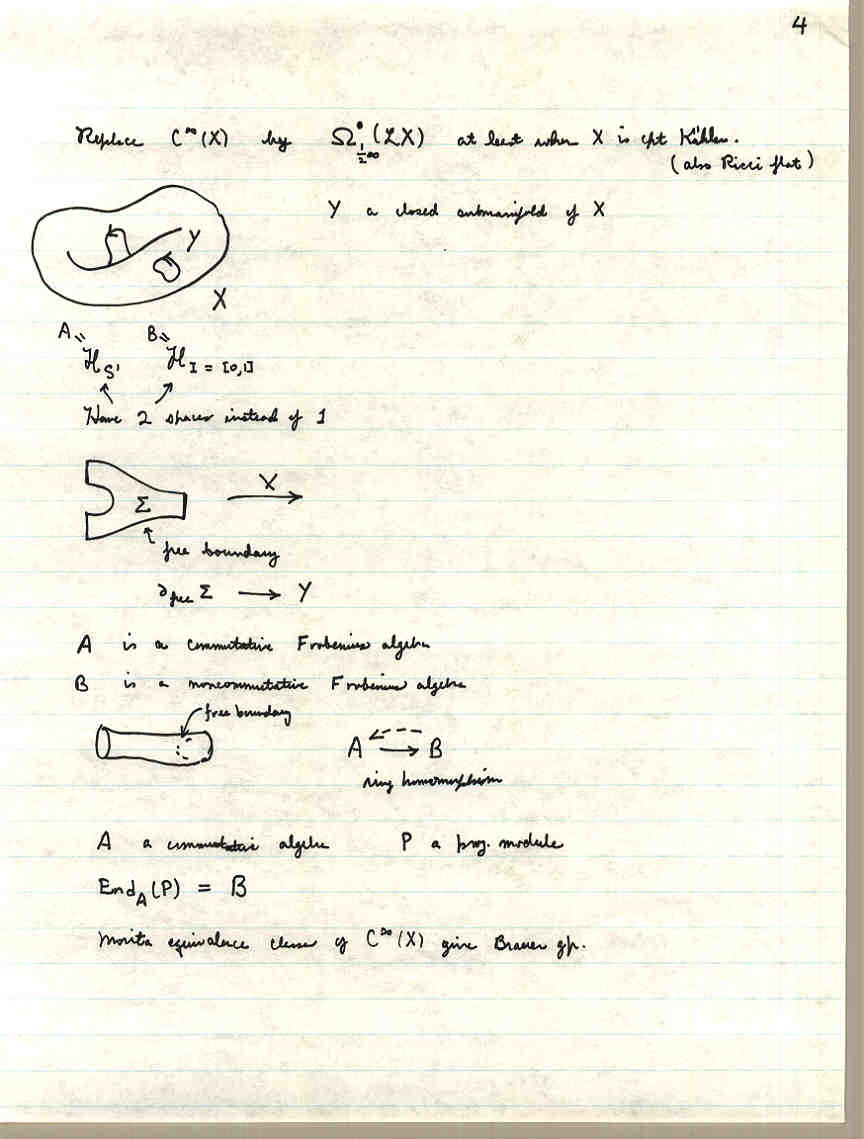 4
Replace C^∞(X) by Ω^•_{½∞}(ℒX) at least when X is cpt Kähler.
(also Ricci flat)
Y a closed submanifold of X
Y
X
A = B =
ℋ_{S¹} ℋ_{I = [0,1]}
Have 2 spaces instead of 1
Σ X
free boundary
∂_{free} Σ ⟶ Y
A is a commutative Frobenius algebra
B is a noncommutative Frobenius algebra
free boundary
A ⟶ B
ring homomorphism
A a commutative algebra P a proj. module
End_A(P) = B
Morita equivalence classes of C^∞(X) give Brauer gp.